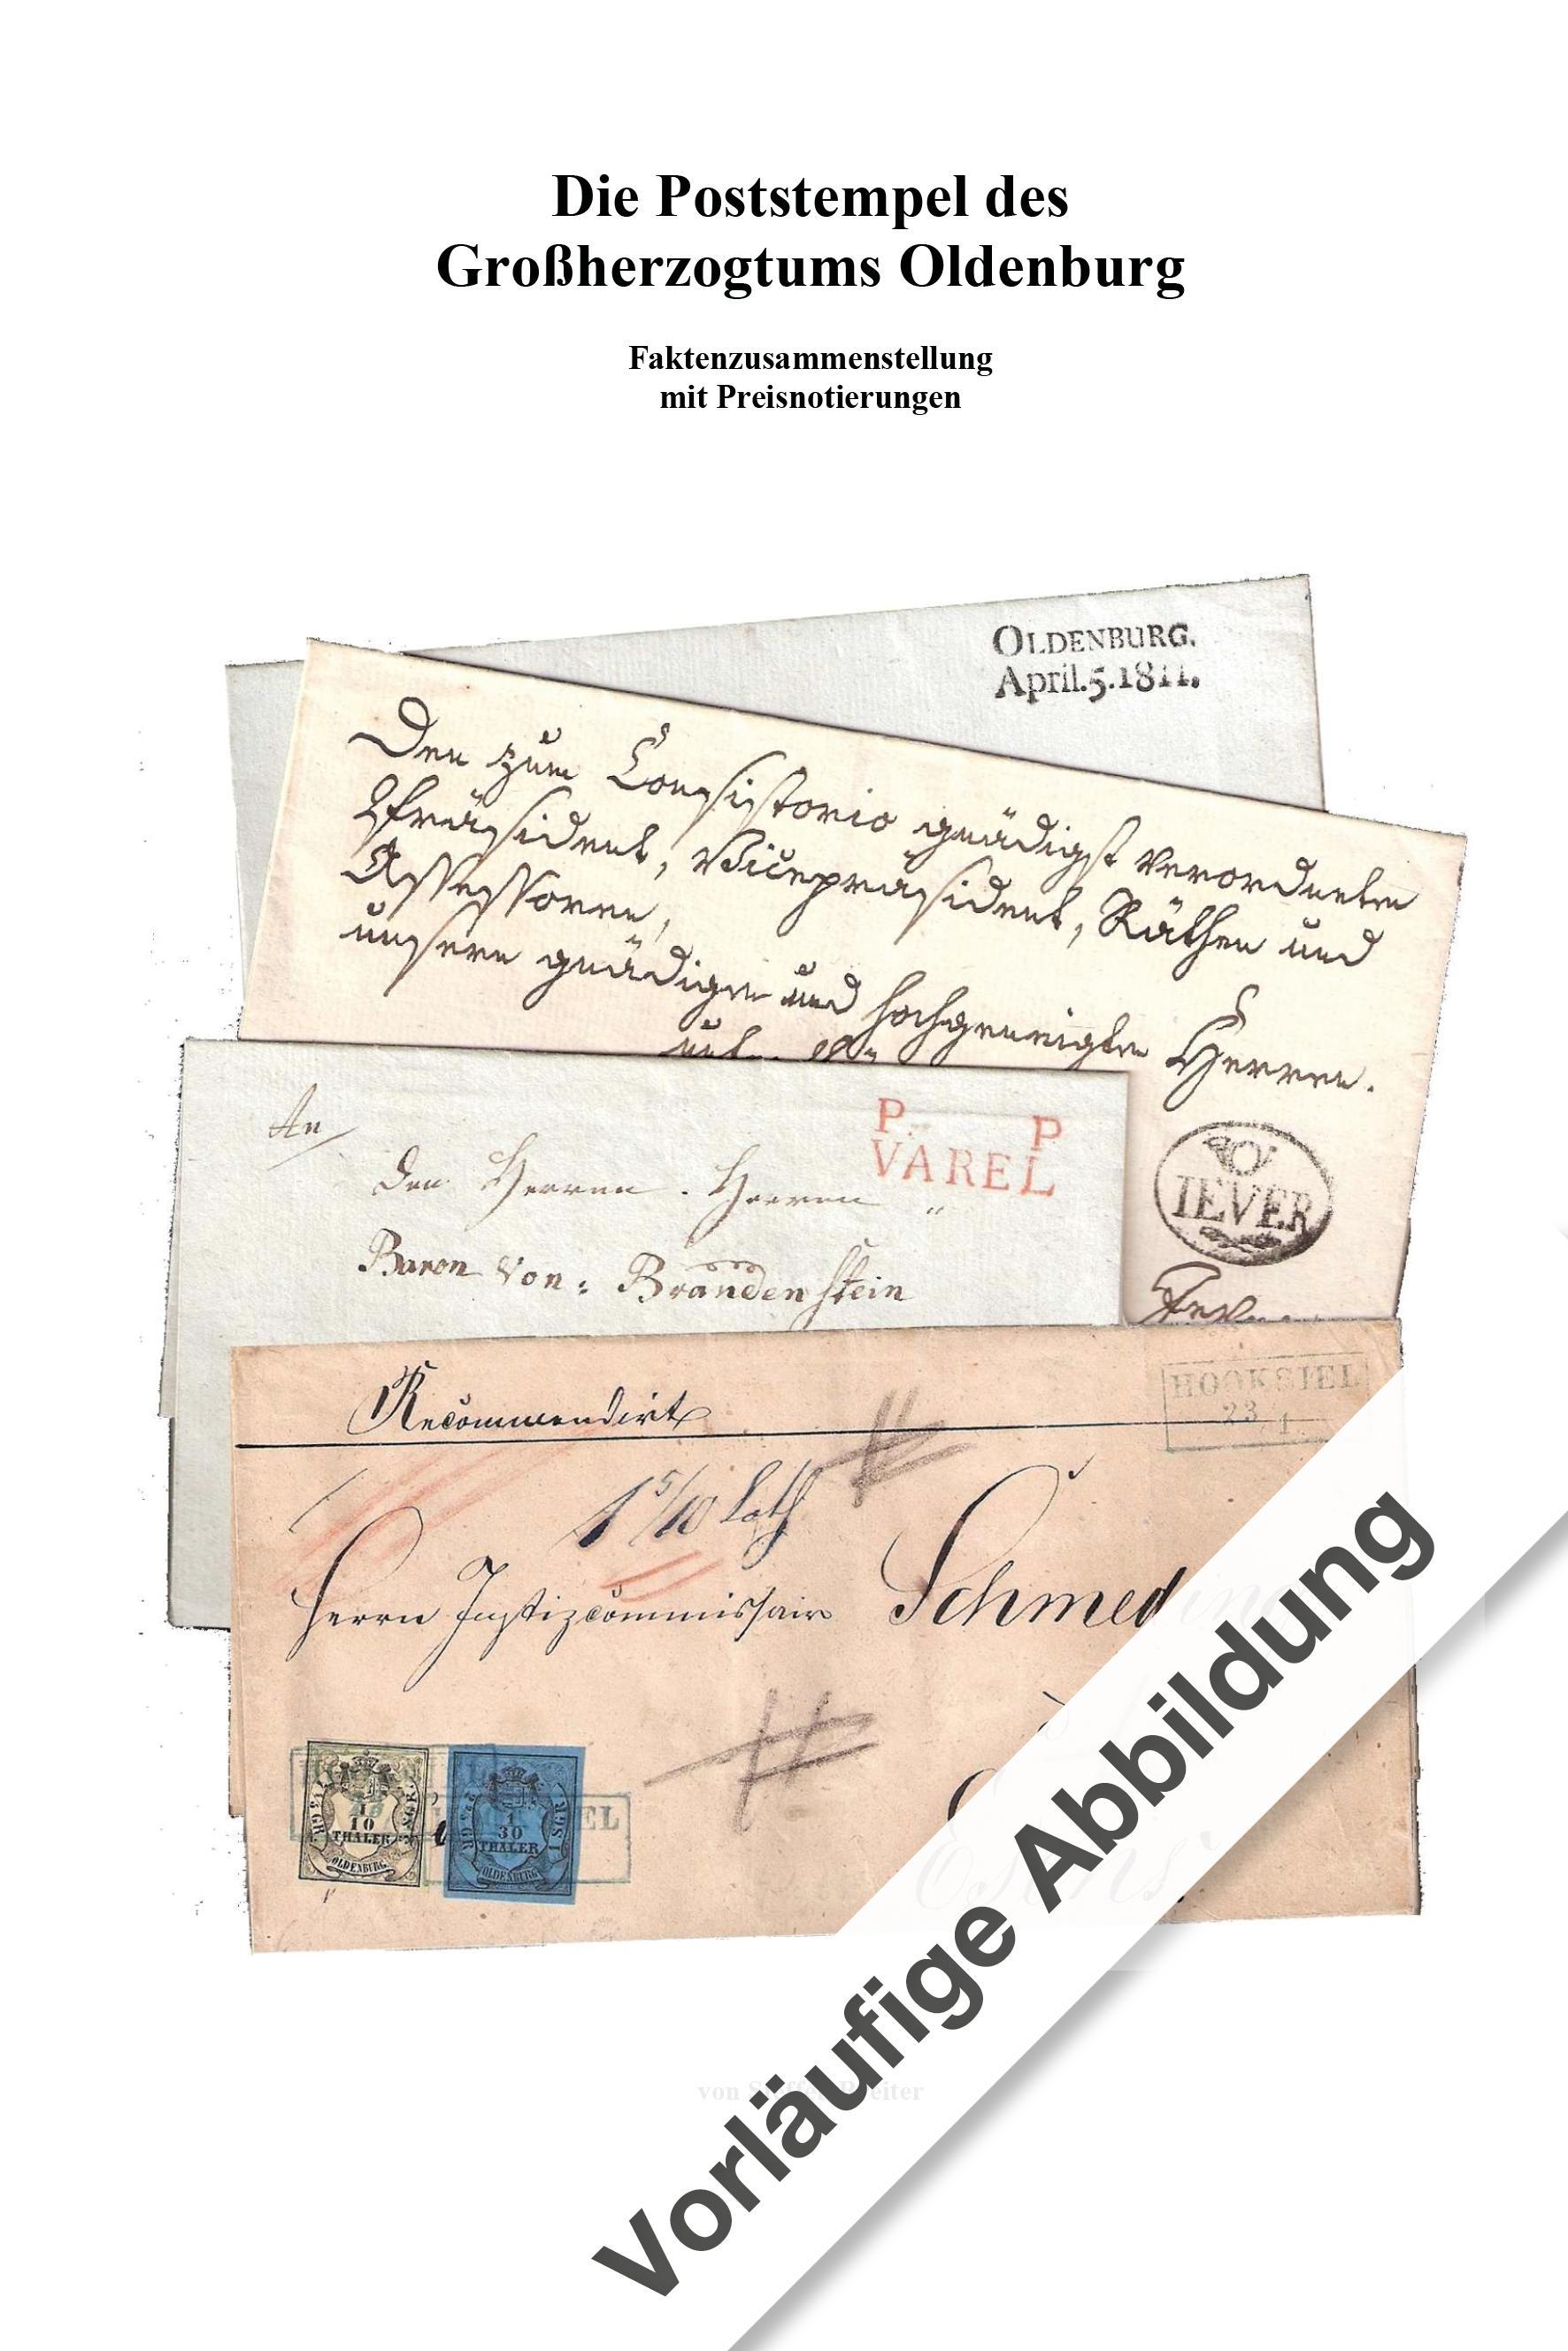 Die Poststempel des
Großherzogtums Oldenburg
Faktenzusammenstellung
mit Preisnotierungen
OLDENBURG.
April.5.1811.
Den zum Consistorio gnädigst verordneten
Präsident, Vicepräsident, Räthen und
Assessoren,
unsern gnädigen und hochgeneigten Herren.
IEVER
P. P
VAREL
An
Den Herren . Herren
Baron von: Brandenstein
Recommendirt
HOOKSIEL
23 1
1 5/10 Loth
Herrn Justizcommissair Schmeding
Esens
1/10
THALER
OLDENBURG
1 SGR.
1
30
THALER
OLDENBURG
EL
von Steffen
Vorläufige Abbildung